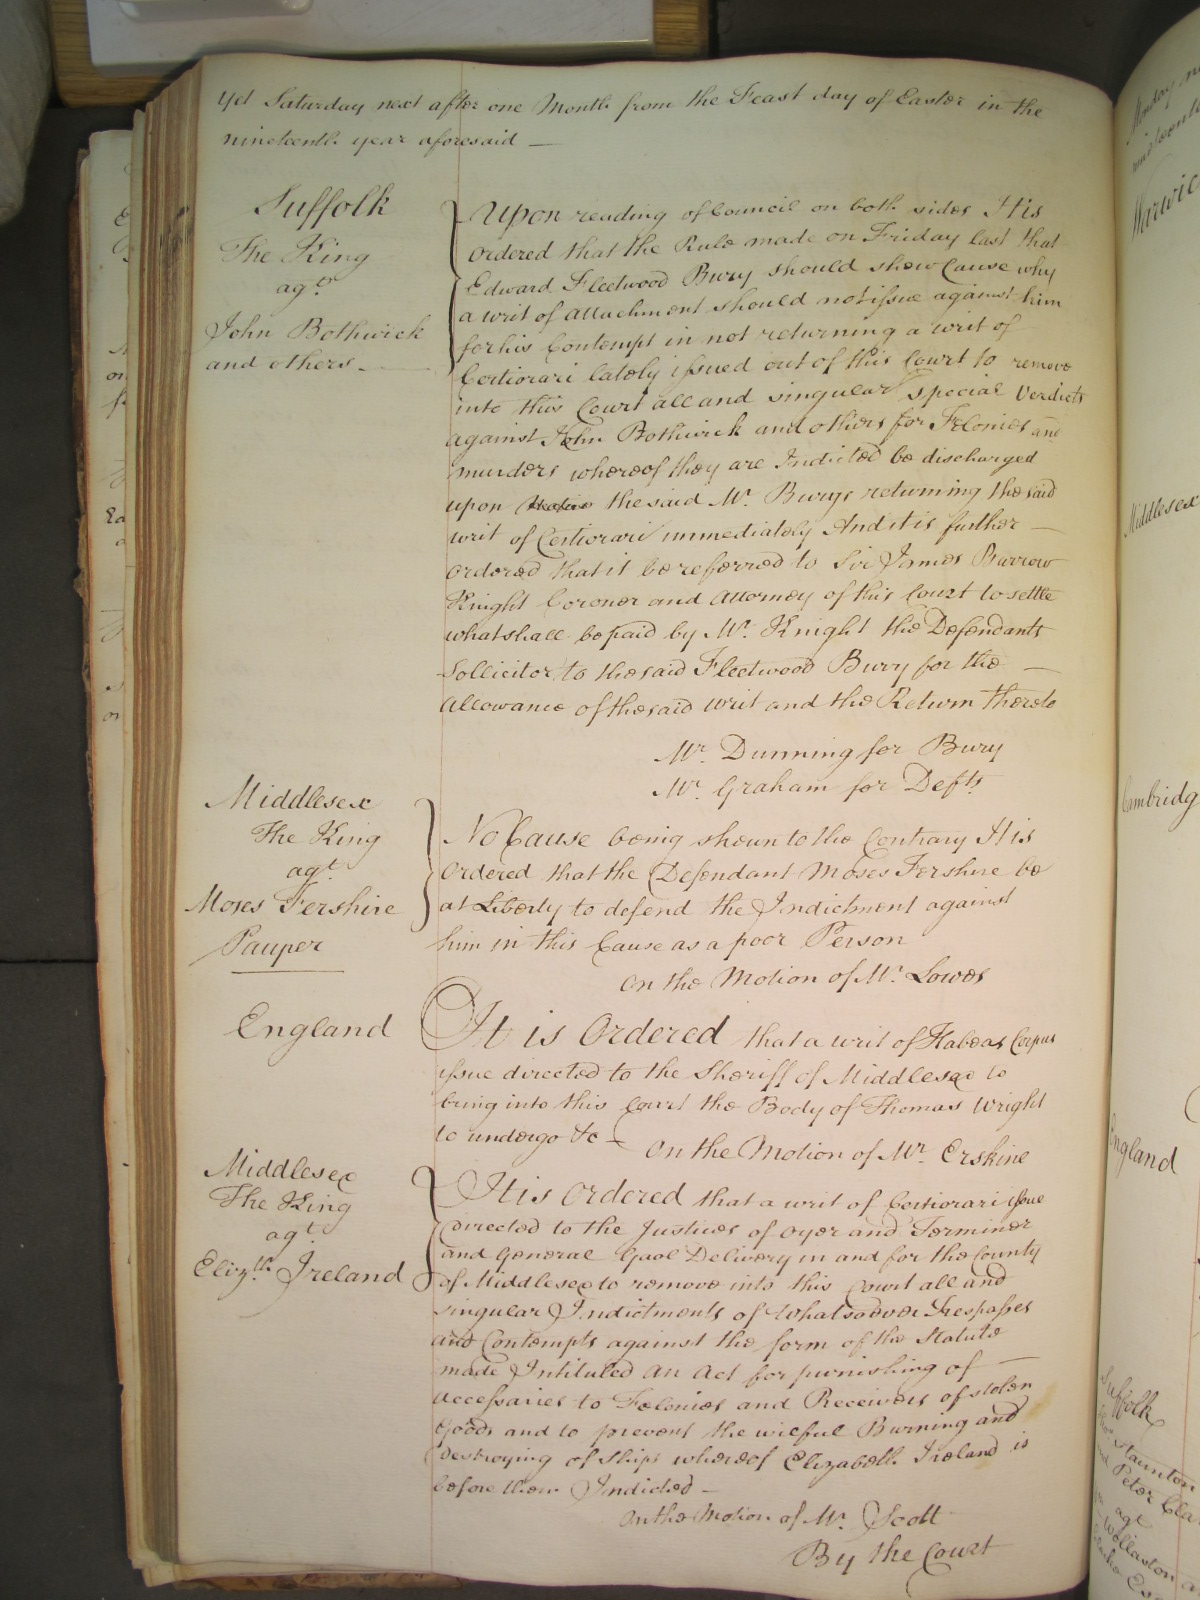 Yet Saturday next after one Month from the Feast day of Easter in the
nineteenth year aforesaid —
Suffolk
The King
agt
John Bothwick
and others —
Upon reading of Councill on both sides It is
Ordered that the Rule made on Friday last that
Edward Fleetwood Bury should shew Cause why
a writ of attachment should not issue against him
for his Contempt in not returning a writ of
Certiorari lately issued out of this Court to remove
into this Court all and singular special Verdicts
against John Bothwick and others for Felonies and
murders whereof they are Indicted be discharged
upon the said Mr. Burys returning the said
writ of Certiorari immediately And it is further —
Ordered that it be referred to Sir James Burrow
Knight Coroner and Attorney of this Court to settle
what shall be paid by Mr. Knight the Defendants
Sollicitor to the said Fleetwood Bury for the —
allowance of the said writ and the Return thereto
Mr. Dunning for Bury
Mr. Graham for Defts
Middlesex
The King
agt
Moses Fershire
Pauper
No Cause being shewn to the Contrary It is
Ordered that the Defendant Moses Fershire be
at Liberty to defend the Indictment against
him in this Cause as a poor Person
On the Motion of Mr. Lowes
England
It is Ordered that a writ of Habeas Corpus
issue directed to the Sheriff of Middlesex to
bring into this Court the Body of Thomas Wright
to undergo &c —
On the Motion of Mr. Erskine
Middlesex
The King
agt
Elizth. Ireland
It is Ordered that a writ of Certiorari issue
directed to the Justices of Oyer and Terminer
and General Gaol Delivery in and for the County
of Middlesex to remove into this Court all and
singular Indictments of Whatsoever Trespasses
and Contempts against the form of the Statute
made Intituled An Act for punishing of —
accessaries to Felonies and Receivers of stolen
Goods and to prevent the wilful Burning and
destroying of Ships whereof Elizabeth Ireland is
before them Indicted —
On the Motion of Mr. Scott
By the Court
Middlesex
England
Suffolk
Staunton
Peter
agt
Wollaston